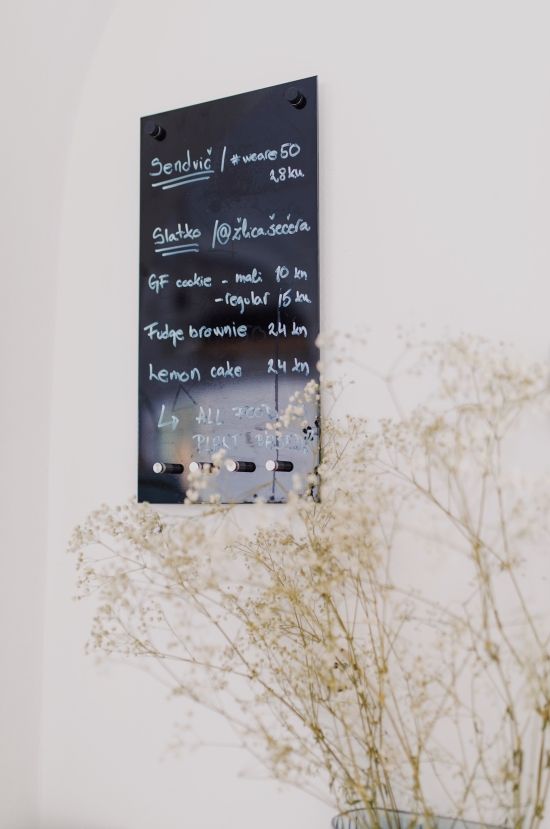 Sendvič / #weare50
28 kn
Slatko / @žlica.šećera
GF cookie - mali 10 kn
- regular 15 kn
Fudge brownie 24 kn
Lemon cake 24 kn
↳ ALL FOOD
PLANT BASED